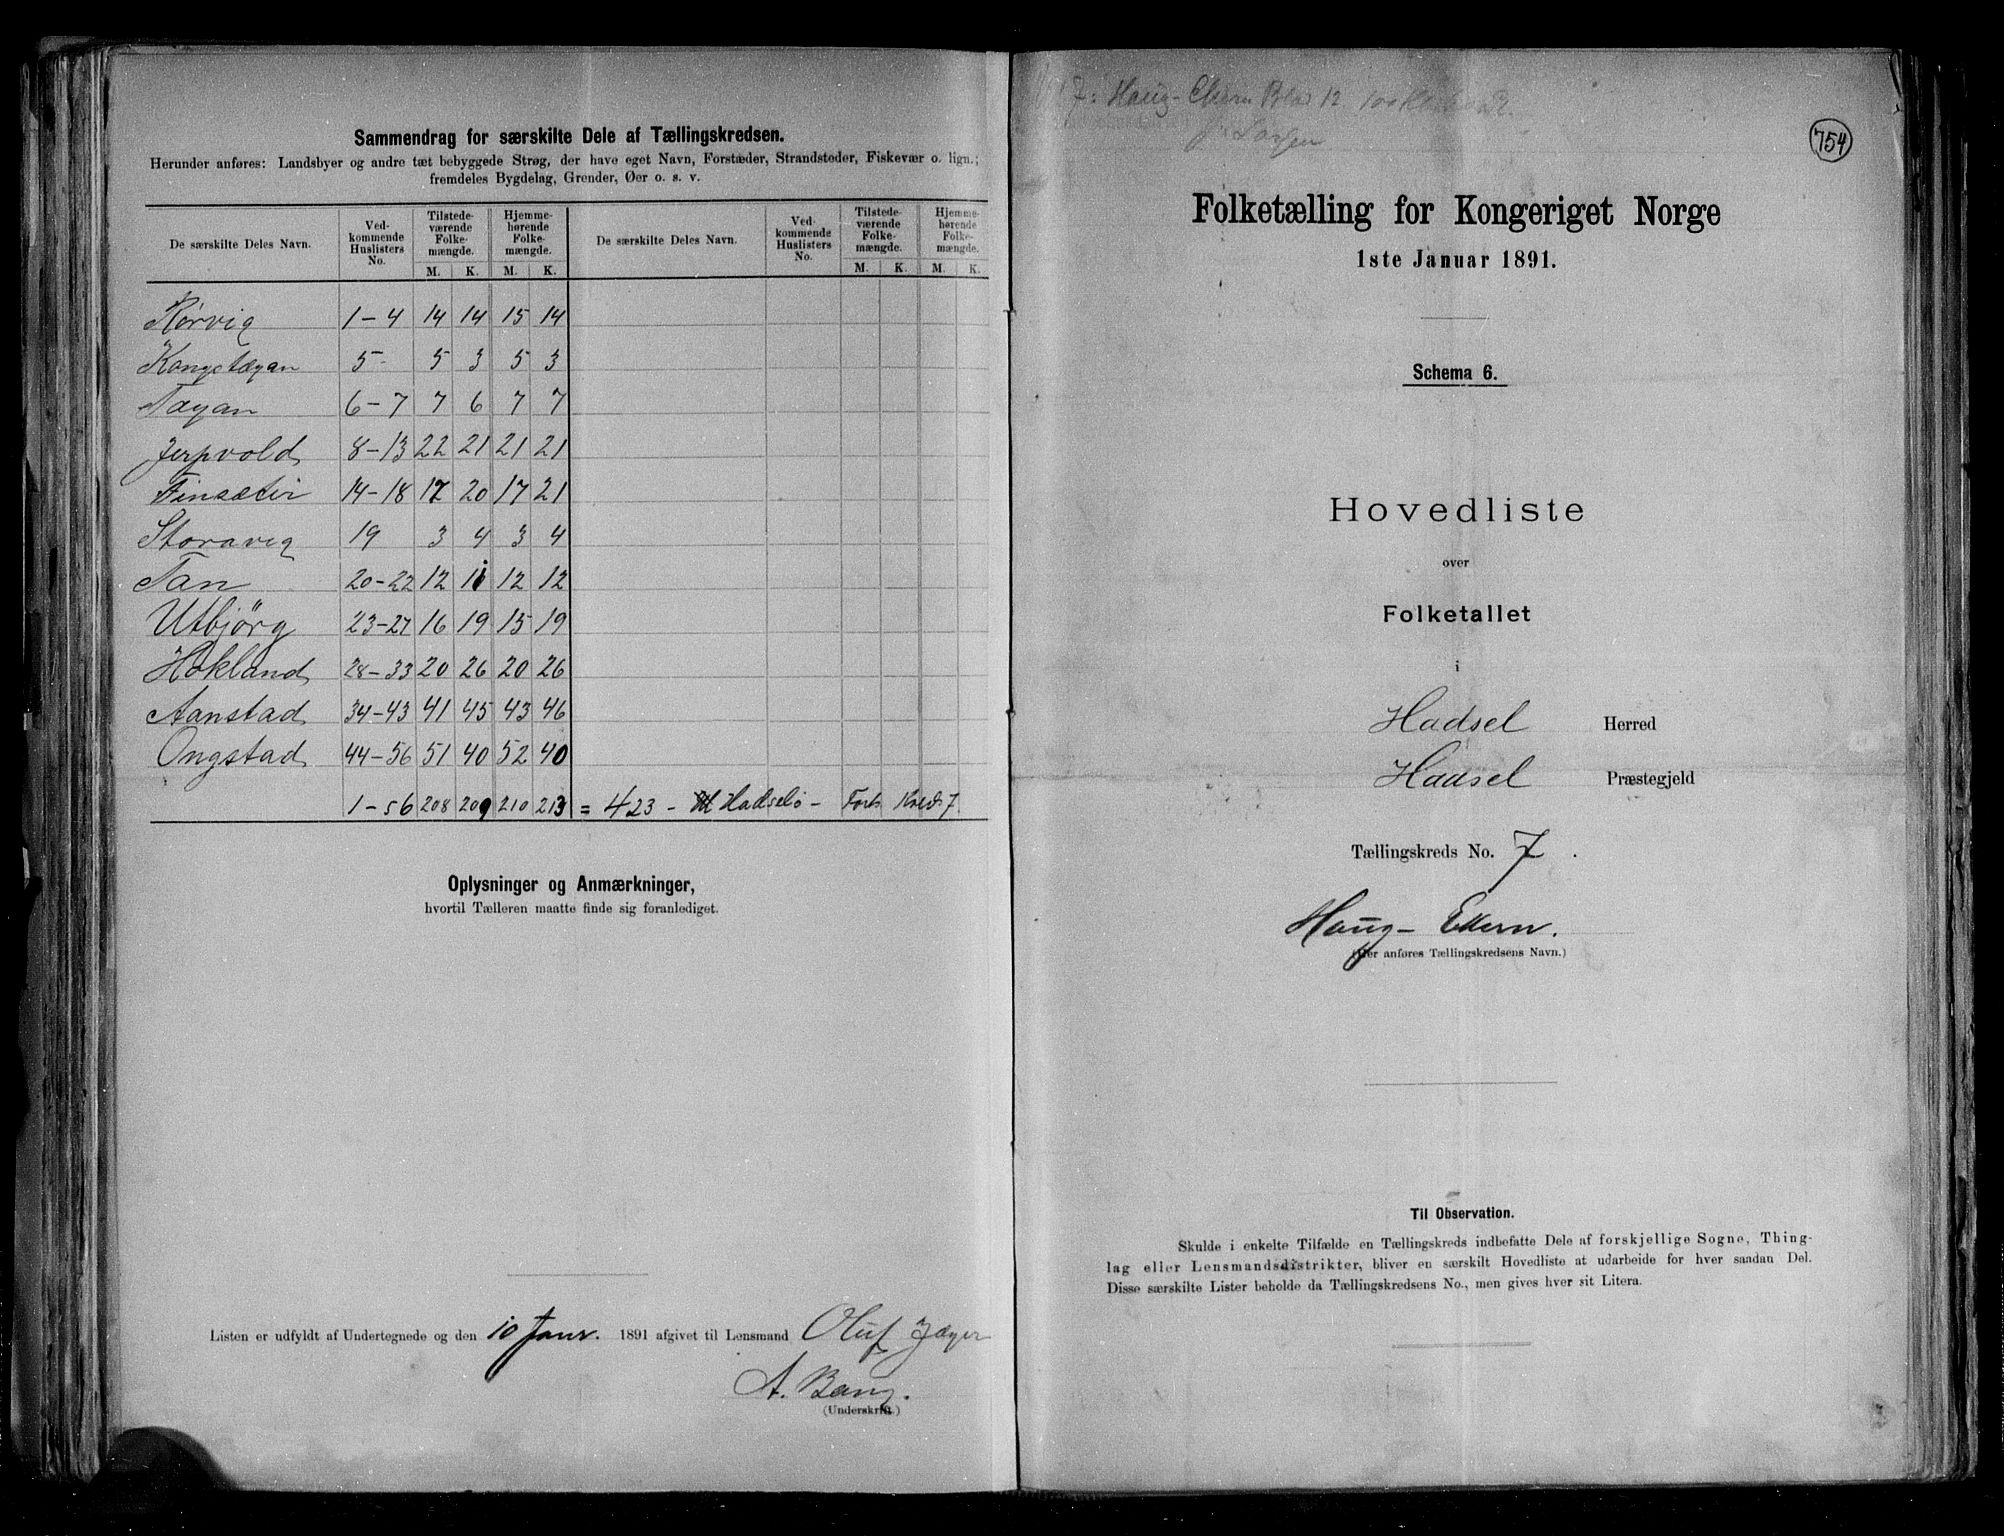 Sammendrag for særskilte Dele af Tællingskredsen.
Herunder anføres: Landsbyer og andre tæt bebyggede Strøg, der have eget Navn, Forstæder, Strandsteder, Fiskevær o. lign.;
fremdeles Bygdelag, Grender, Øer o. s. v.
De særskilte Deles Navn. Ved-kommende Huslisters No. Tilstede-værende Folke-mængde. Hjemme-hørende Folke-mængde. De særskilte Deles Navn. Ved-kommende Huslisters No. Tilstede-værende Folke-mængde. Hjemme-hørende Folke-mængde.
M. K. M. K. M. K. M. K.
Kørvig 1-4 14 14 15 14
Kongstæyan 5 5 3 5 3
Tæyan 6-7 7 6 7 7
Jerpvold 8-13 22 21 21 21
Finsæter 14-18 17 20 17 21
Storavig 19 3 4 3 4
Tan 20-22 12 11 12 12
Utbjörg 23-27 16 19 15 19
Hokland 28-33 20 26 20 26
Aanstad 34-43 41 45 43 46
Ongstad 44-56 51 40 52 40
1-56 208 209 210 213 = 423 - Hadselö - Forts Kreds 7.
Oplysninger og Anmærkninger,
hvortil Tælleren maatte finde sig foranlediget.
Listen er udfyldt af Undertegnede og den 10 Janr. 1891 afgivet til Lensmand Oluf Jæger
A. Bang.
(Underskrift.)
7: Haug- 12
754
Folketælling for Kongeriget Norge
1ste Januar 1891.
Schema 6.
Hovedliste
over
Folketallet
i
Hadsel Herred
Hadsel Præstegjeld
Tællingskreds No. 7.
Haug-
(Her anføres Tællingskredsens Navn.)
Til Observation.
Skulde i enkelte Tilfælde en Tællingskreds indbefatte Dele af forskjellige Sogne, Thing-
lag eller Lensmandsdistrikter, bliver en særskilt Hovedliste at udarbeide for hver saadan Del.
Disse særskilte Lister beholde da Tællingskredsens No., men gives hver sit Litera.